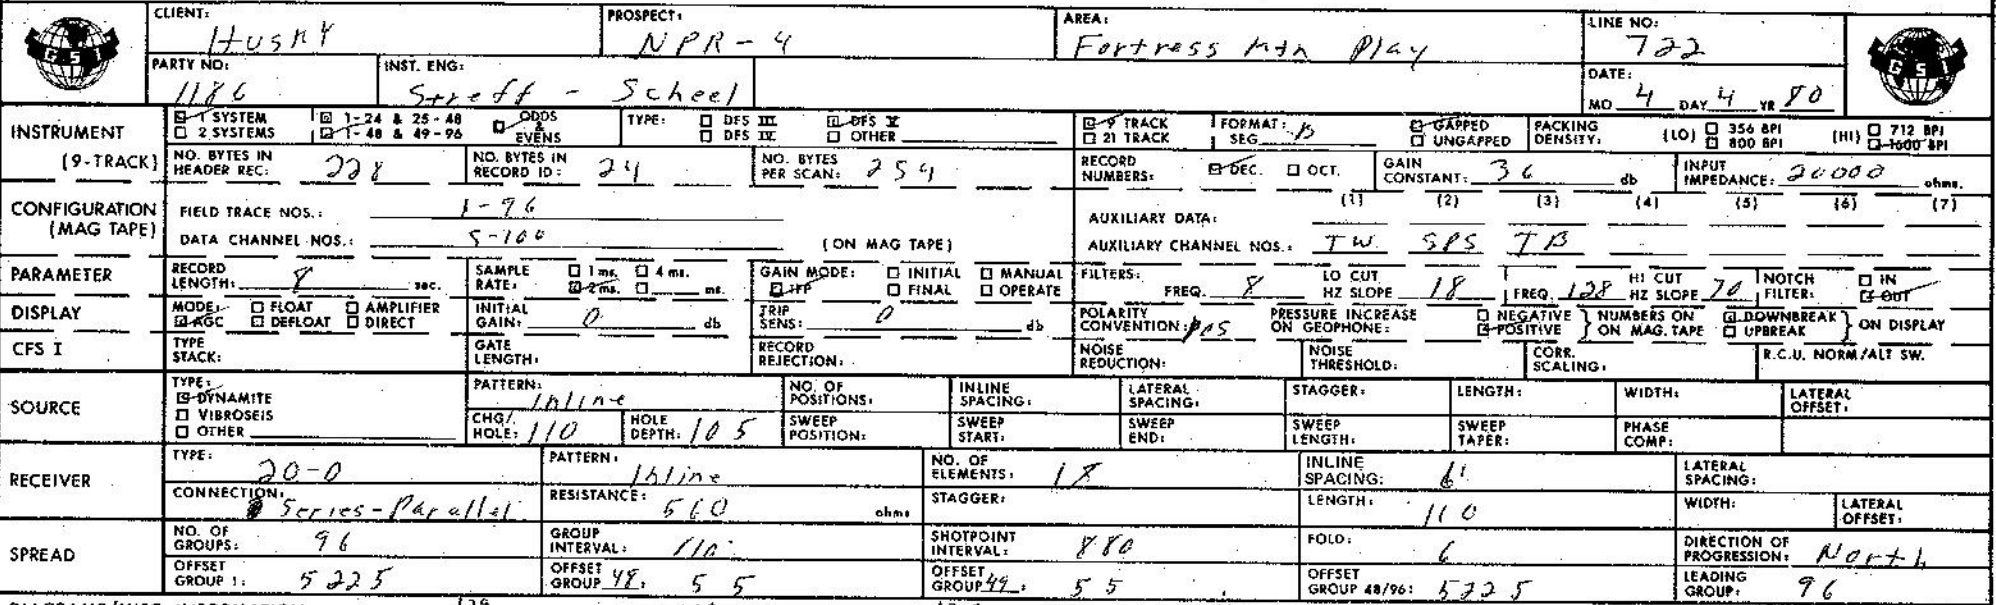 CLIENT: PROSPECT: AREA: LINE NO:
GSI HUSKY NPR-4 Fortress Mtn Play 722 GSI
PARTY NO: INST. ENG: DATE:
1186 Streff - Scheel MO 4 DAY 4 YR 80
INSTRUMENT 1 SYSTEM 1-24 & 25-48 ODDS & EVENS TYPE: DFS III DFS V 9 TRACK FORMAT: GAPPED PACKING (LO) 356 BPI (HI) 712 BPI
2 SYSTEMS 1-48 & 49-96 DFS IV OTHER 21 TRACK SEG B UNGAPPED DENSITY: 800 BPI 1600 BPI
(9-TRACK) NO. BYTES IN HEADER REC: 228 NO. BYTES IN RECORD ID: 24 NO. BYTES PER SCAN: 254 RECORD NUMBERS: DEC. OCT. GAIN CONSTANT: 36 db INPUT IMPEDANCE: 20000 ohms.
CONFIGURATION FIELD TRACE NOS.: 1-96 AUXILIARY DATA: (1) (2) (3) (4) (5) (6) (7)
(MAG TAPE) DATA CHANNEL NOS.: 5-100 (ON MAG TAPE) AUXILIARY CHANNEL NOS.: TW SPS TB
PARAMETER RECORD LENGTH: 8 sec. SAMPLE RATE: 1 ms. 4 ms. 2 ms. ms. GAIN MODE: INITIAL MANUAL IFP FINAL OPERATE FILTERS: FREQ. 8 LO CUT HZ SLOPE 18 FREQ. 128 HI CUT HZ SLOPE 70 NOTCH FILTER: IN OUT
DISPLAY MODE: FLOAT AMPLIFIER AGC DEFLOAT DIRECT INITIAL GAIN: 0 db TRIP SENS: 0 db POLARITY CONVENTION: pos PRESSURE INCREASE ON GEOPHONE: NEGATIVE POSITIVE NUMBERS ON ON MAG. TAPE DOWNBREAK UPBREAK ON DISPLAY
CFS I TYPE STACK: GATE LENGTH: RECORD REJECTION: NOISE REDUCTION: NOISE THRESHOLD: CORR. SCALING: R.C.U. NORM/ALT SW.
SOURCE TYPE: DYNAMITE VIBROSEIS OTHER PATTERN: Inline NO. OF POSITIONS: INLINE SPACING: LATERAL SPACING: STAGGER: LENGTH: WIDTH: LATERAL OFFSET:
CHG/HOLE: 110 HOLE DEPTH: 105 SWEEP POSITION: SWEEP START: SWEEP END: SWEEP LENGTH: SWEEP TAPER: PHASE COMP:
RECEIVER TYPE: 20-D PATTERN: Inline NO. OF ELEMENTS: 18 INLINE SPACING: 6' LATERAL SPACING:
CONNECTION: Series-Parallel RESISTANCE: 560 ohms STAGGER: LENGTH: 110 WIDTH: LATERAL OFFSET:
SPREAD NO. OF GROUPS: 96 GROUP INTERVAL: 110 SHOTPOINT INTERVAL: 880 FOLD: 6 DIRECTION OF PROGRESSION: North
OFFSET GROUP 1: 5225 OFFSET GROUP 48: 55 OFFSET GROUP 49: 55 OFFSET GROUP 48/96: 5225 LEADING GROUP: 96